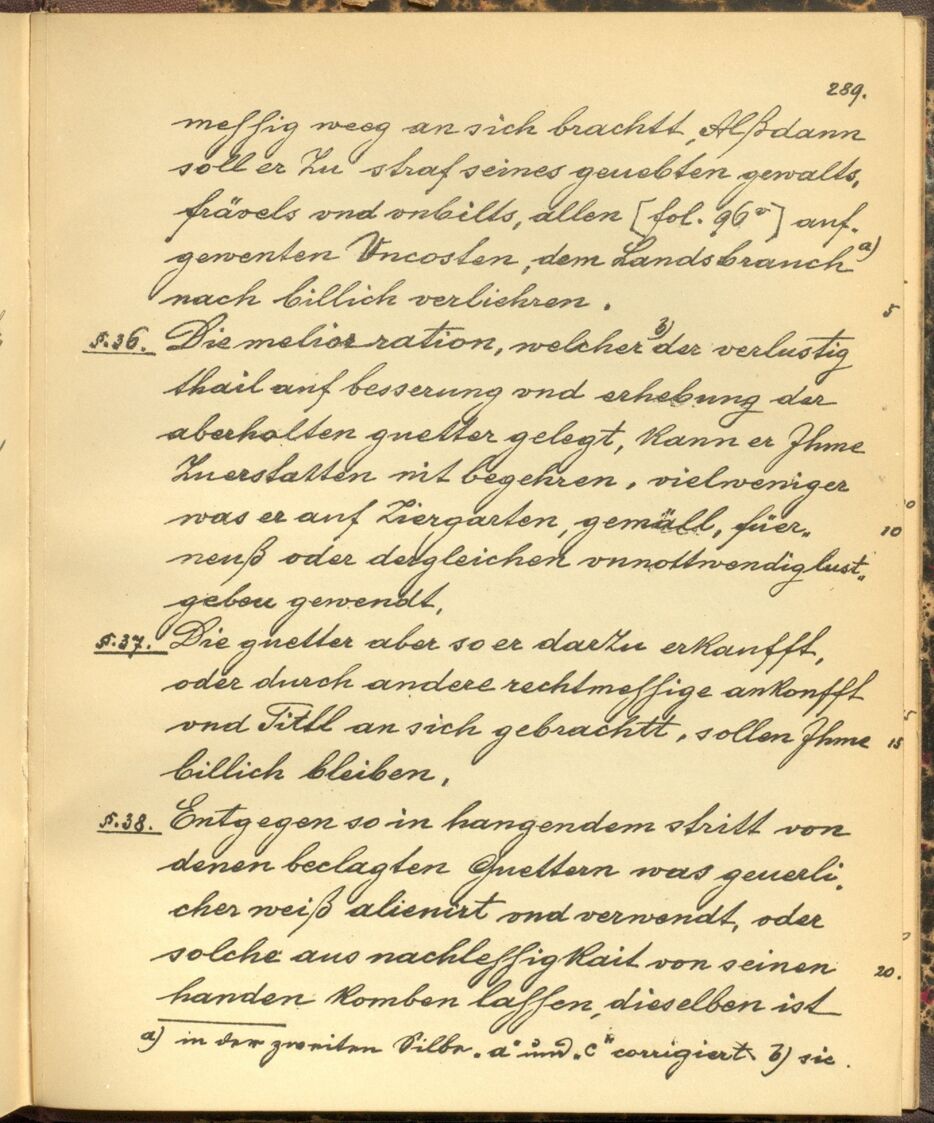 289.
messig weeg an sich brachtt, Alßdann
soll er Zu straf seines geuebten gewalts,
frävels vnd vnbilts, allen [fol. 96v] auf-
gewenten Vncosten, dem Landsbrauch a)
nach billich verliehren. 5
§.36. Die melior ration, welcher b) der verlustig
thail auf besserung vnd erhebung der
aberhalten guetter gelegt, kann er Ihme
Zuerstatten nit begehren, vielweniger
was er auf Ziergarten, gemäll, füer- 10
neuß oder dergleichen vnnottwendig lust-
geben gewendt.
§.37. Die guetter aber so er darZu erkaufft,
oder durch andere rechtmessige ankonfft
vnd Titll an sich gebrachtt, sollen Ihme 15
billich bleiben.
§.38. Entgegen so in hangendem stritt von
denen beclagten Guettern was geuerli-
cher weiß alienirt vnd verwendt, oder
solche aus nachlessigkait von seinen 20.
handen komben lassen, dieselben ist
a) in der zweiten Silbe „a" und „c" corrigiert. b) sic.